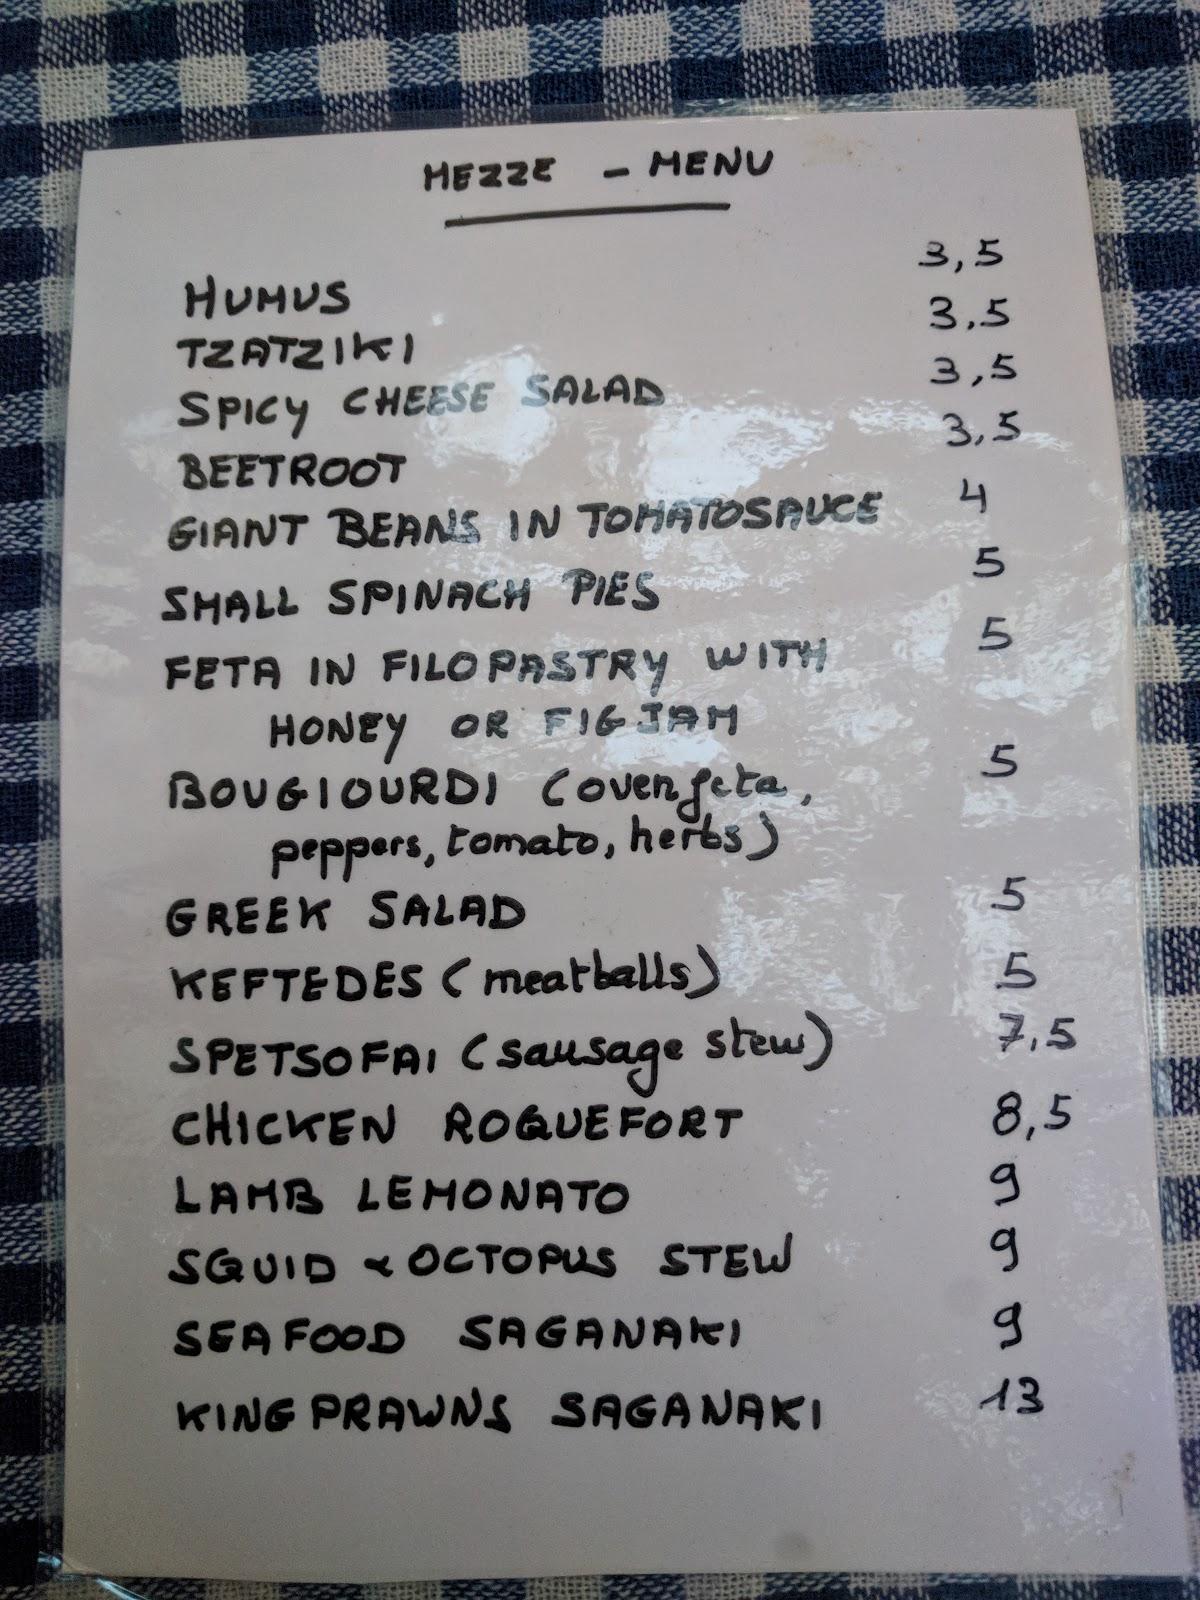 MEZZE - MENU
HUMUS 3,5
TZATZIKI 3,5
SPICY CHEESE SALAD 3,5
BEETROOT 3,5
GIANT BEANS IN TOMATOSAUCE 4
SMALL SPINACH PIES 5
FETA IN FILOPASTRY WITH 5
HONEY OR FIG JAM
BOUGIOURDI (oven feta, 5
peppers, tomato, herbs)
GREEK SALAD 5
KEFTEDES (meatballs) 5
SPETSOFAI (sausage stew) 7,5
CHICKEN ROQUEFORT 8,5
LAMB LEMONATO 9
SQUID & OCTOPUS STEW 9
SEAFOOD SAGANAKI 9
KING PRAWNS SAGANAKI 13